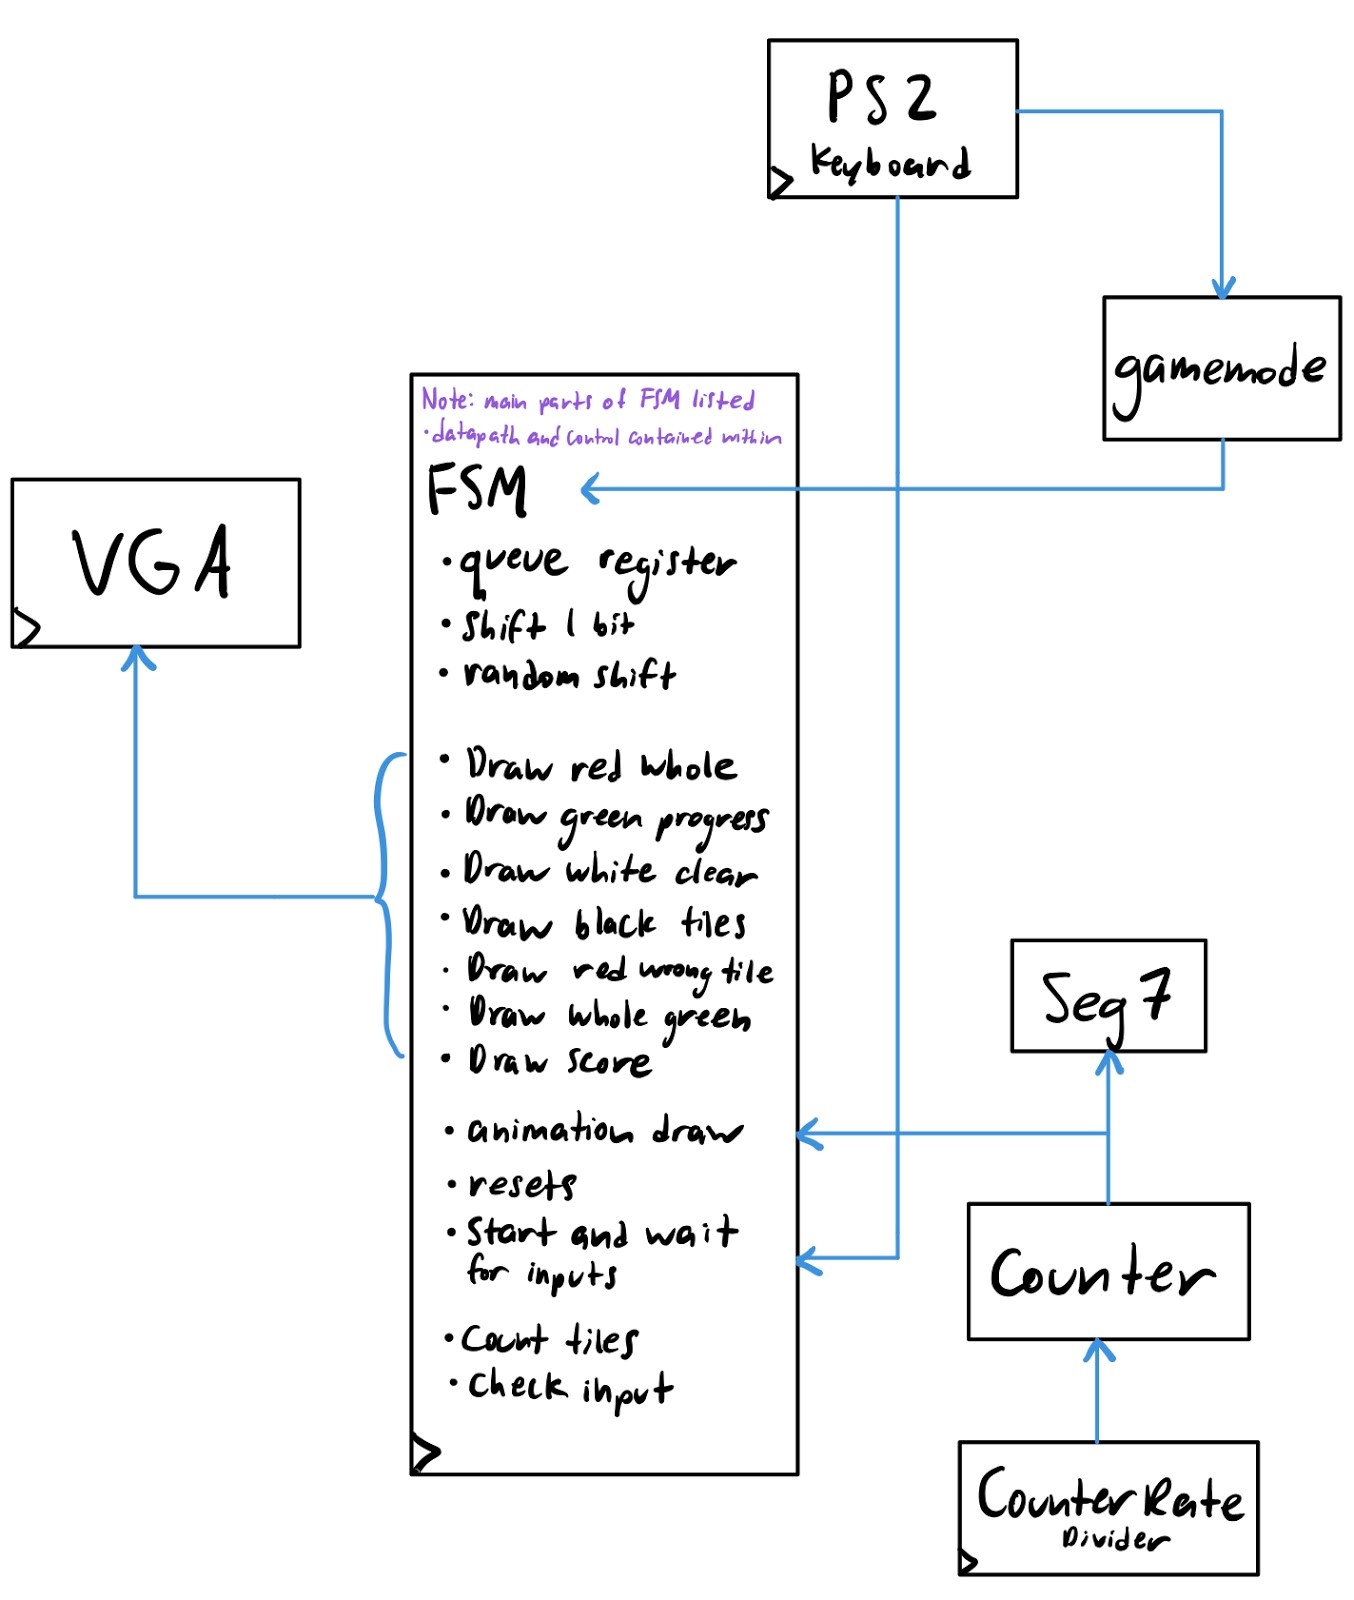 PS2
Keyboard
gamemode
Note: main parts of FSM listed
• datapath and control contained within
FSM
• queue register
• shift 1 bit
• random shift
• Draw red whole
• Draw green progress
• Draw white clear
• Draw black tiles
• Draw red wrong tile
• Draw whole green
• Draw score
• animation draw
• resets
• Start and wait
for inputs
• Count tiles
• check input
VGA
Seg7
Counter
Counter Rate
Divider